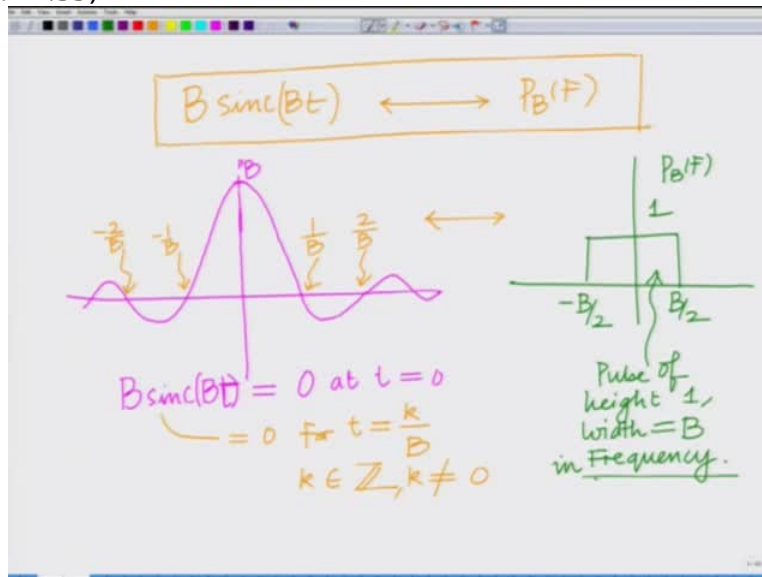 B sinc(Bt) ⟷ P_B(F)
B
P_B(F)
1
-2/B -1/B 1/B 2/B
-B/2 B/2
B sinc(Bt) = 0 at t = 0
= 0 for t = k/B
k ∈ ℤ, k ≠ 0
Pulse of
height 1,
width = B
in Frequency.